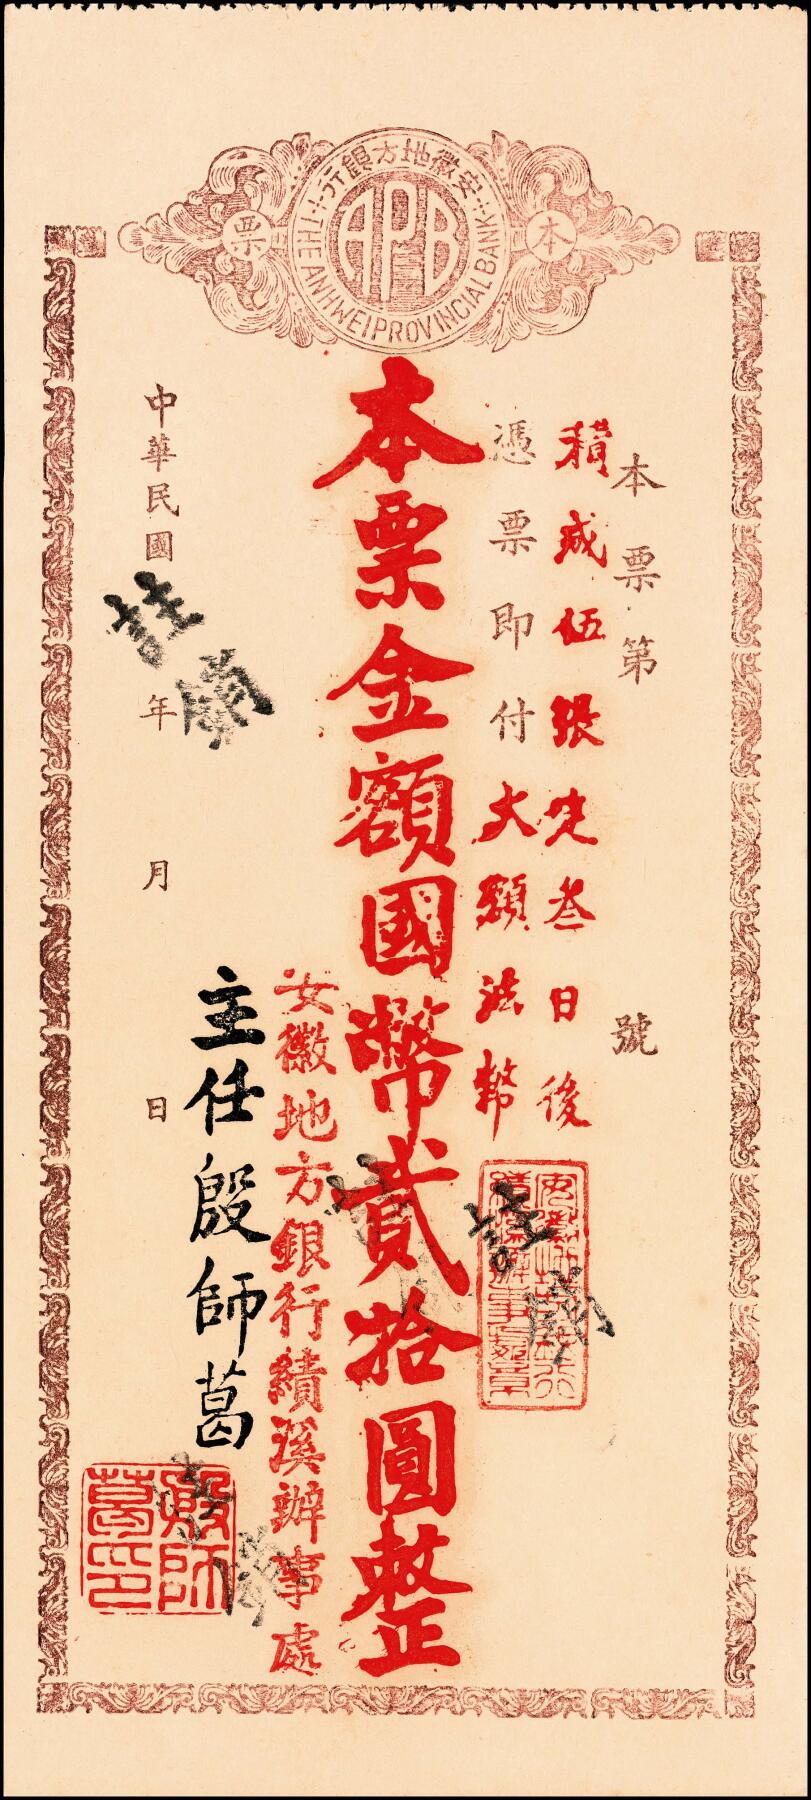 安徽地方銀行
THE ANHWEI PROVINCIAL BANK
APB
本票
本票第 號
積成伍張定叁日後
憑票即付大額法幣
本票金額國幣貳拾圓整
安徽地方銀行績溪辦事處
主任殷師葛
中華民國 年 月 日
註銷
註銷
註銷
註銷
殷師葛印